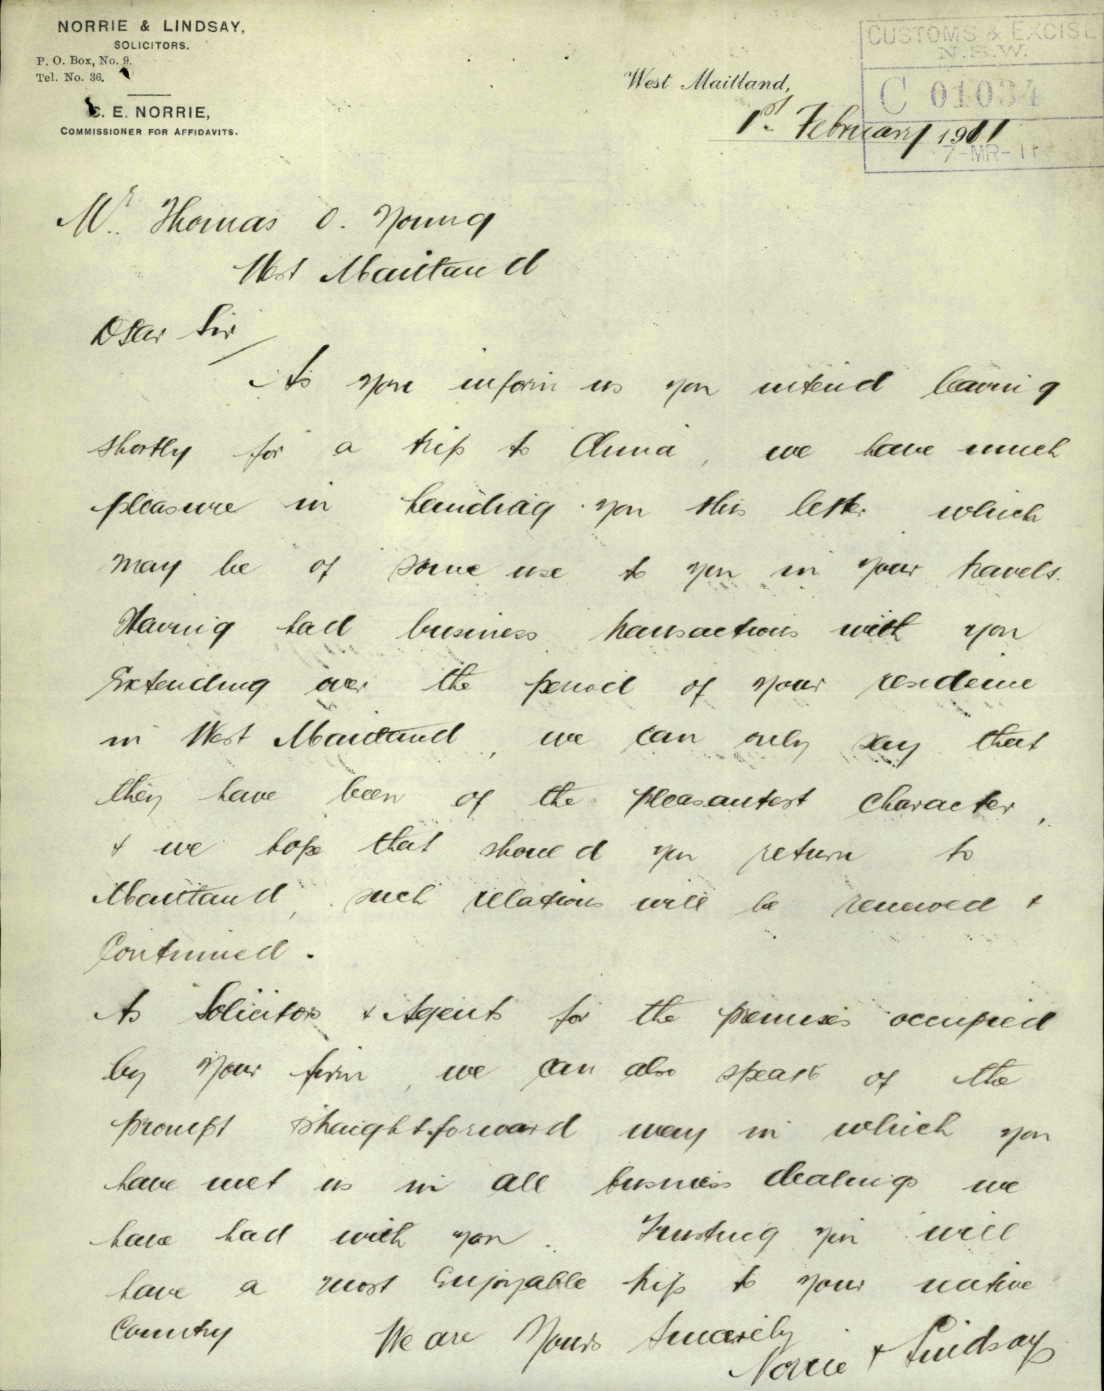 NORRIE & LINDSAY,
SOLICITORS.
P. O. Box, No. 9.
Tel. No. 36.
C. E. NORRIE,
COMMISSIONER FOR AFFIDAVITS.
CUSTOMS & EXCISE
N.S.W.
C 01034
7-MR-11
West Maitland,
1st February 1911
Mr. Thomas O. Young
West Maitland
Dear Sir
As you inform us you intend leaving
shortly for a trip to China, we have much
pleasure in handing you this letter which
may be of some use to you in your travels.
Having had business transactions with you
extending over the period of your residence
in West Maitland, we can only say that
they have been of the pleasantest character,
& we hope that should you return to
Maitland, such relations will be renewed &
continued.
As Solicitors & Agents for the premises occupied
by your firm, we can also speak of the
prompt straightforward way in which you
have met us in all business dealings we
have had with you. Trusting you will
have a most enjoyable trip to your native
Country
We are Yours Sincerely
Norrie & Lindsay